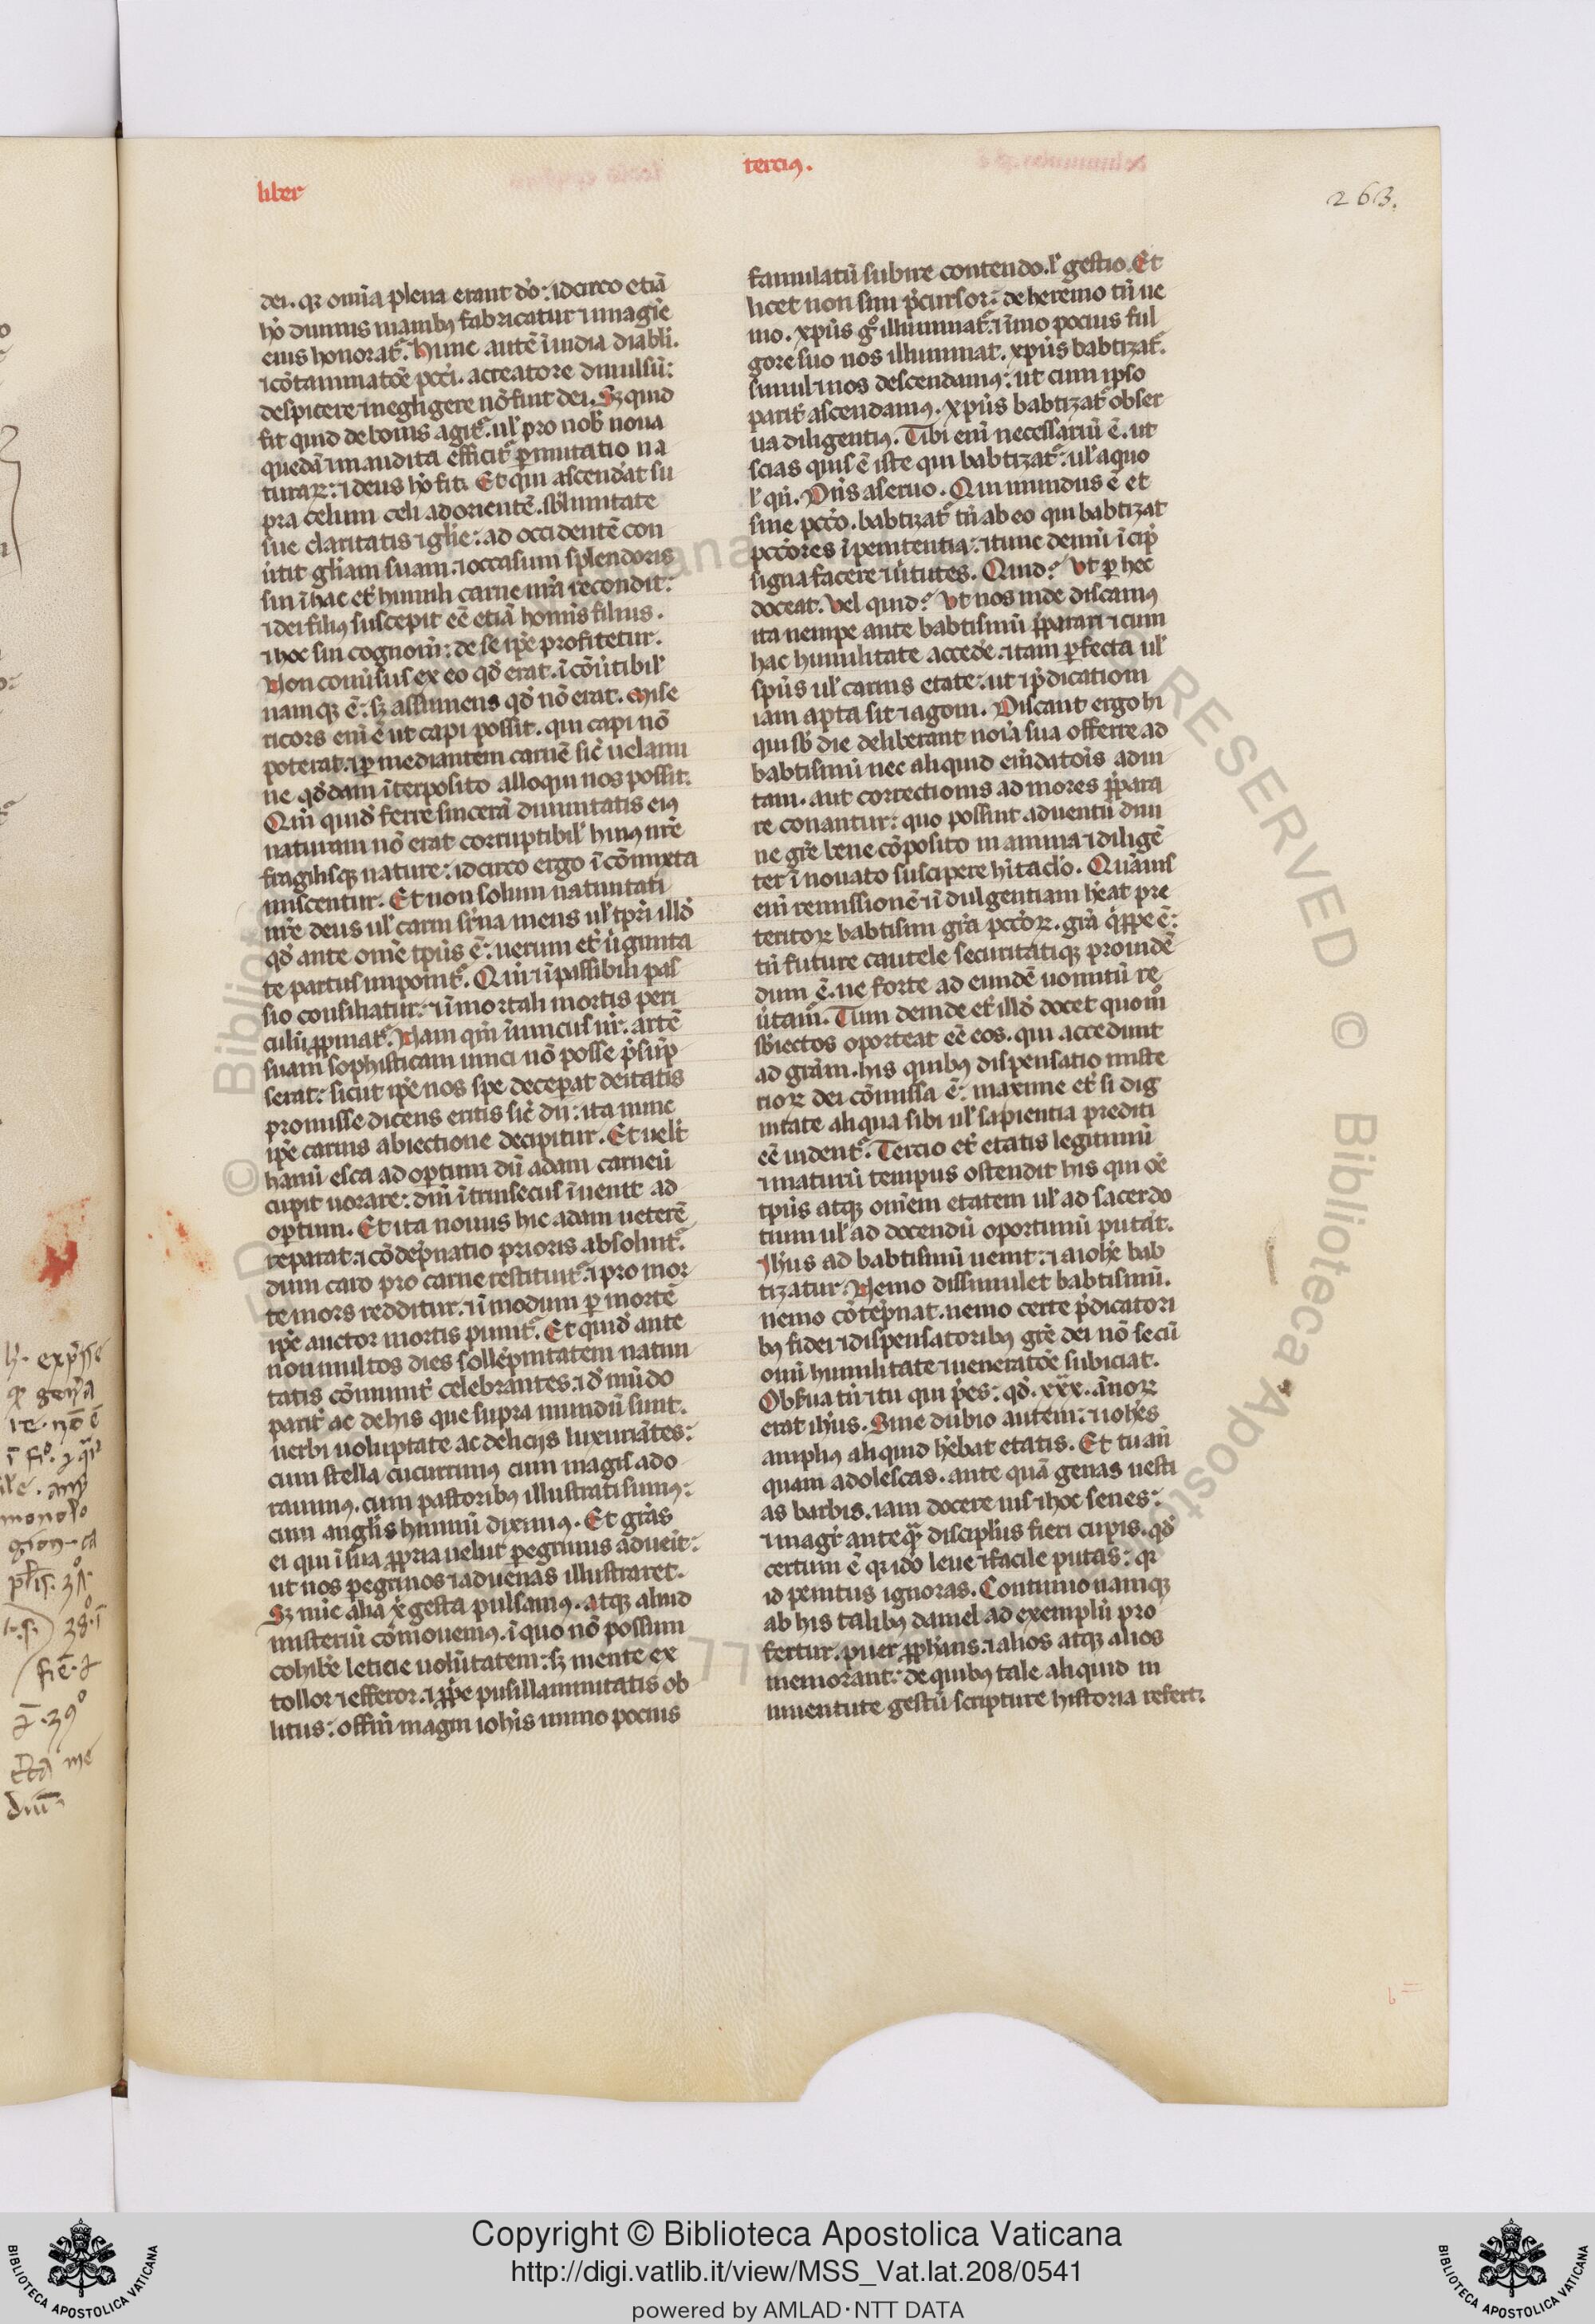 liber
tercius.
263.
dei. quia omnia plena erant deo: idcirco etiã
hõ diuinis manibus fabricatur ⁊ imagine
eius honorat᷑. Hunc autẽ ĩuidia diaboli.
⁊ cõtaminatõe pccĩ. a creatore diuulsũ:
despicere ⁊ negligere nõ fuit dei. Sꝫ quid
fit quid de bonis agit᷑. ul' pro nob' noua
quedã ⁊ inaudita efficit᷑ ꝑmutatio na
turaꝝ: ⁊ deus hõ fit. Et qui ascendat su
pra celum celi ad orientẽ. sblimitate
sue claritatis ⁊ glie: ad occidentẽ con
uertit gliam suam. ⁊ occasum splendoris
sui ĩ hac et humili carne nrã recondit:
⁊ dei filius suscepit eẽ etiã homis filius.
⁊ hoc sui cognoim: de se ipẽ profitetur.
Non conuersus ex eo qd' erat. ĩ cõuertibil'
namqꝫ ẽ: sꝫ assumens qd' nõ erat. Mise
ricors eni ẽ ut capi possit. qui capi nõ
poterat. ⁊ ꝑ mediantem carnẽ sic uelami
ne qdam ĩterposito alloqui nos possit.
Qm quid' ferre sincerã diuinitatis eius
naturam nõ erat corruptibil' huius nrẽ
fragilisqꝫ nature: idcirco ergo ĩ cõmixta
miscentur. Et non solum natiuitati
nrẽ deus ul' carni
qd' ante omẽ tpus ẽ: uerum et uirgini ta
te partus imponit᷑. Qm ⁊ ĩpassibili pas
sio consiliatur: ⁊ ĩmortali mortis peri
culũ ꝓpinat᷑. Nam qm inimicus nr. artẽ
suam sophisticam uinci nõ posse p̃sũp
serat: sicut ipẽ nos spe decepat deitatis
promisse dicens eritis sic dii: ita nunc
ipẽ carnis abiectione decipitur. Et uelit
hamũ esca ad optum dũ adam carneũ
cupit uorare: dm ĩtrinsecus ĩuenit ad
optum. Et ita nouus hic adam ueterẽ
reparat. ⁊ cõdẽpnatio prioris absoluit᷑.
dum caro pro carne restituit᷑. ⁊ pro mor
te mors redditur. ⁊ ĩ modum ꝑ mortẽ
ipẽ auctor mortis punit᷑. Et quid' ante
non multos dies sollẽpnitatem natiui
tatis cõmunit' celebrantes. ⁊ d' mũdo
parit' ac de his que supra mundũ sunt.
uerbi uoluptate ac delicijs luxuriãtes:
cum stella cucurrimus cum magis ado
rauimus. cum pastoribus illustrati sumus:
cum anglis himnũ diximus. Et gr̃as
ei qui ĩ sua ꝓpria uelut ꝑegrinus aduenit:
ut nos ꝑegrinos ⁊ aduenas illustraret.
Sꝫ nũc alia x̃ gesta pulsamus. atqꝫ aliud
misteriũ cõmouemus. ĩ quo nõ possum
cohibẽ leticie uolũtatem: sꝫ mente ex
tollor ⁊ efferor. ⁊ ꝓpe pusillanimitatis ob
litus: offm magni iohis immo pocius
famulatũ subire contendo. l' gestio. Et
licet non sim p̃cursor: de heremo tñ ue
nio. xpus gᵒ illuminat᷑. ⁊ ĩmo pocius ful
gore suo nos illuminat. xpus babtizat᷑.
simul ⁊ nos descendamus: ut cum ipso
parit' ascendamus. xpus babtizat᷑ obser
ua diligentius. Tibi eni necessariũ ẽ. ut
scias quis ẽ iste qui babtizat᷑: ul' a quo
l' qñ. Dñs a seruo. Qui mundus ẽ et
sine pccõ. babtizat᷑ tñ ab eo qui babtizat
pccõres ĩ penitentia: ⁊ tunc demũ ĩcip
signa facere ⁊ uirtutes. Quid? Vt ꝑ hec
doceat. Vel quid? Vt nos inde discamus
ita nempe ante babtismũ ꝓparari ⁊ cum
hac humilitate accedẽ. ⁊ tam ꝑfecta ul'
spus ul' carnis etate: ut p̃dicationi
iam apta sit ⁊ agoni. Discant ergo hi
qui sb die deliberant noia sua offerre ad
babtismũ nec aliquid emẽdatois ad ui
tam. aut correctionis ad mores ꝓpara
re conantur: quo possint aduentũ diui
ne gr̃e bene cõposito in anima ⁊ diligẽ
ter ĩnouato suscipere hitaclo. Quãuis
eni remissionẽ ⁊ ĩdulgentiam heat pre
teritoꝝ babtismi gr̃a pccoꝝ. gr̃a qippe ẽ:
tñ future cautele securitatiqꝫ prouidẽ
dum ẽ. ne forte ad eundẽ uomitũ re
uertam. Tum deinde et illd' docet quom
sbiectos oporteat eẽ eos. qui accedunt
ad gr̃am. his quibus dispensatio miste
rioꝝ dei cõmissa ẽ: maxime et si dig
nitate aliqua sibi ul' sapientia prediti
eẽ uident᷑. Tercio et etatis legitimũ
⁊ maturũ tempus ostendit his qui oẽ
tpus atqꝫ omem etatem ul' ad sacerdo
tium ul' ad docendũ oportunũ putat.
Ihus ad babtismũ uenit: ⁊ a iohe bab
tizatur. Nemo dissimulet babtismũ.
nemo cõtẽpnat. nemo certe p̃dicatori
bus fidei ⁊ dispensatoribus gr̃e dei nõ se cũ
omi humilitate ⁊ ueneratõe subiciat.
Obserua tñ ⁊ tu qui p̃es: qd'. xxx. ãnoꝝ
erat ihus. Sine dubio autem: ⁊ iohes
amplius aliquid hebat etatis. Et tu an
quam adolescas. ante quã genas uesti
as barbis. iam docere uis ⁊ hoc senes:
⁊ magr anteqꝫ disciplus fieri cupis. qd'
certum ẽ qꝛ ido leue ⁊ facile putas: qꝛ
id penitus ignoras. Continuo namqꝫ
ab his talibus daniel ad exemplũ pro
fertur. puer ꝓphans. ⁊ alios atqꝫ alios
memorant: de quibus tale aliquid in
iuuentute gestũ scripture historia refert.
© Biblioteca Apostolica Vaticana
Copyright © Biblioteca Apostolica Vaticana
http://digi.vatlib.it/view/MSS_Vat.lat.208/0541
powered by AMLAD·NTT DATA
BIBLIOTECA APOSTOLICA VATICANA
BIBLIOTECA APOSTOLICA VATICANA